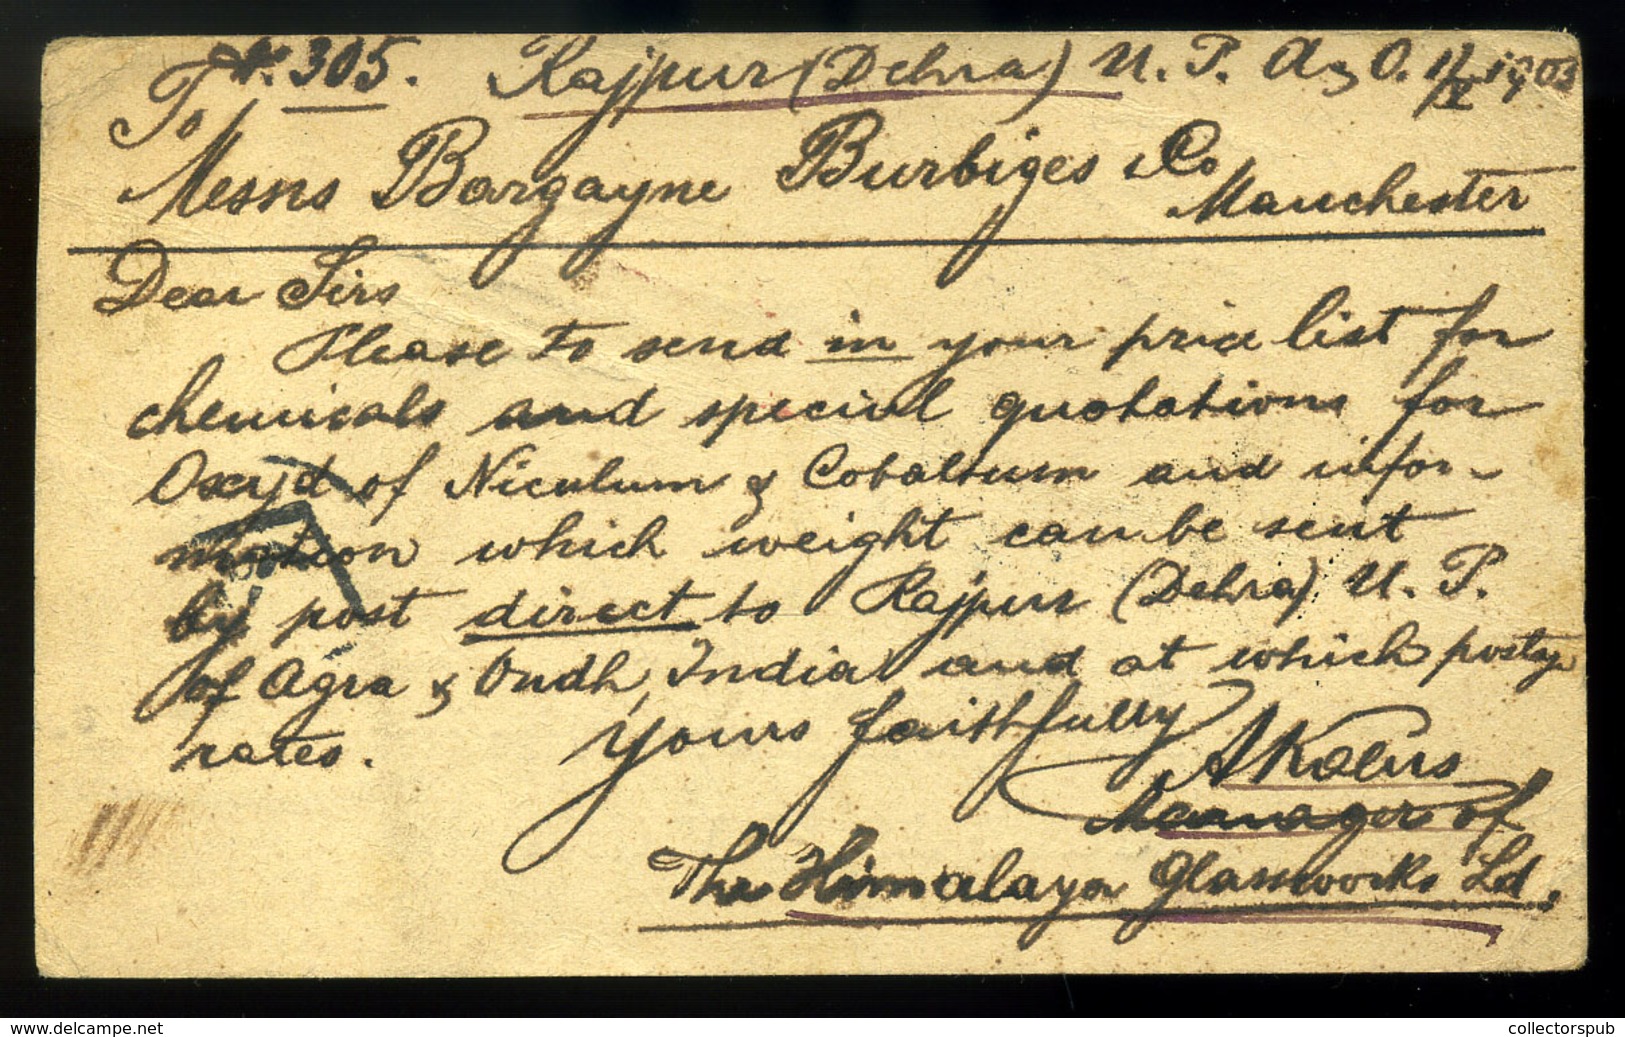 No. 305. Rajpur (Dehra) U. P. A & O. 11/X 1903
To
Messrs Borgayne Burbiges & Co
Manchester
Dear Sirs
Please to send in your price list for
chemicals and special quotations for
Oxyd of Niculum & Cobaltum and infor-
mation which weight can be sent
by post direct to Rajpur (Dehra) U. P.
of Agra & Oudh, India and at which postage
rates.
Yours faithfully
Manager of
The Himalaya Glassworks Ld.
www.delcampe.net
collectorspub